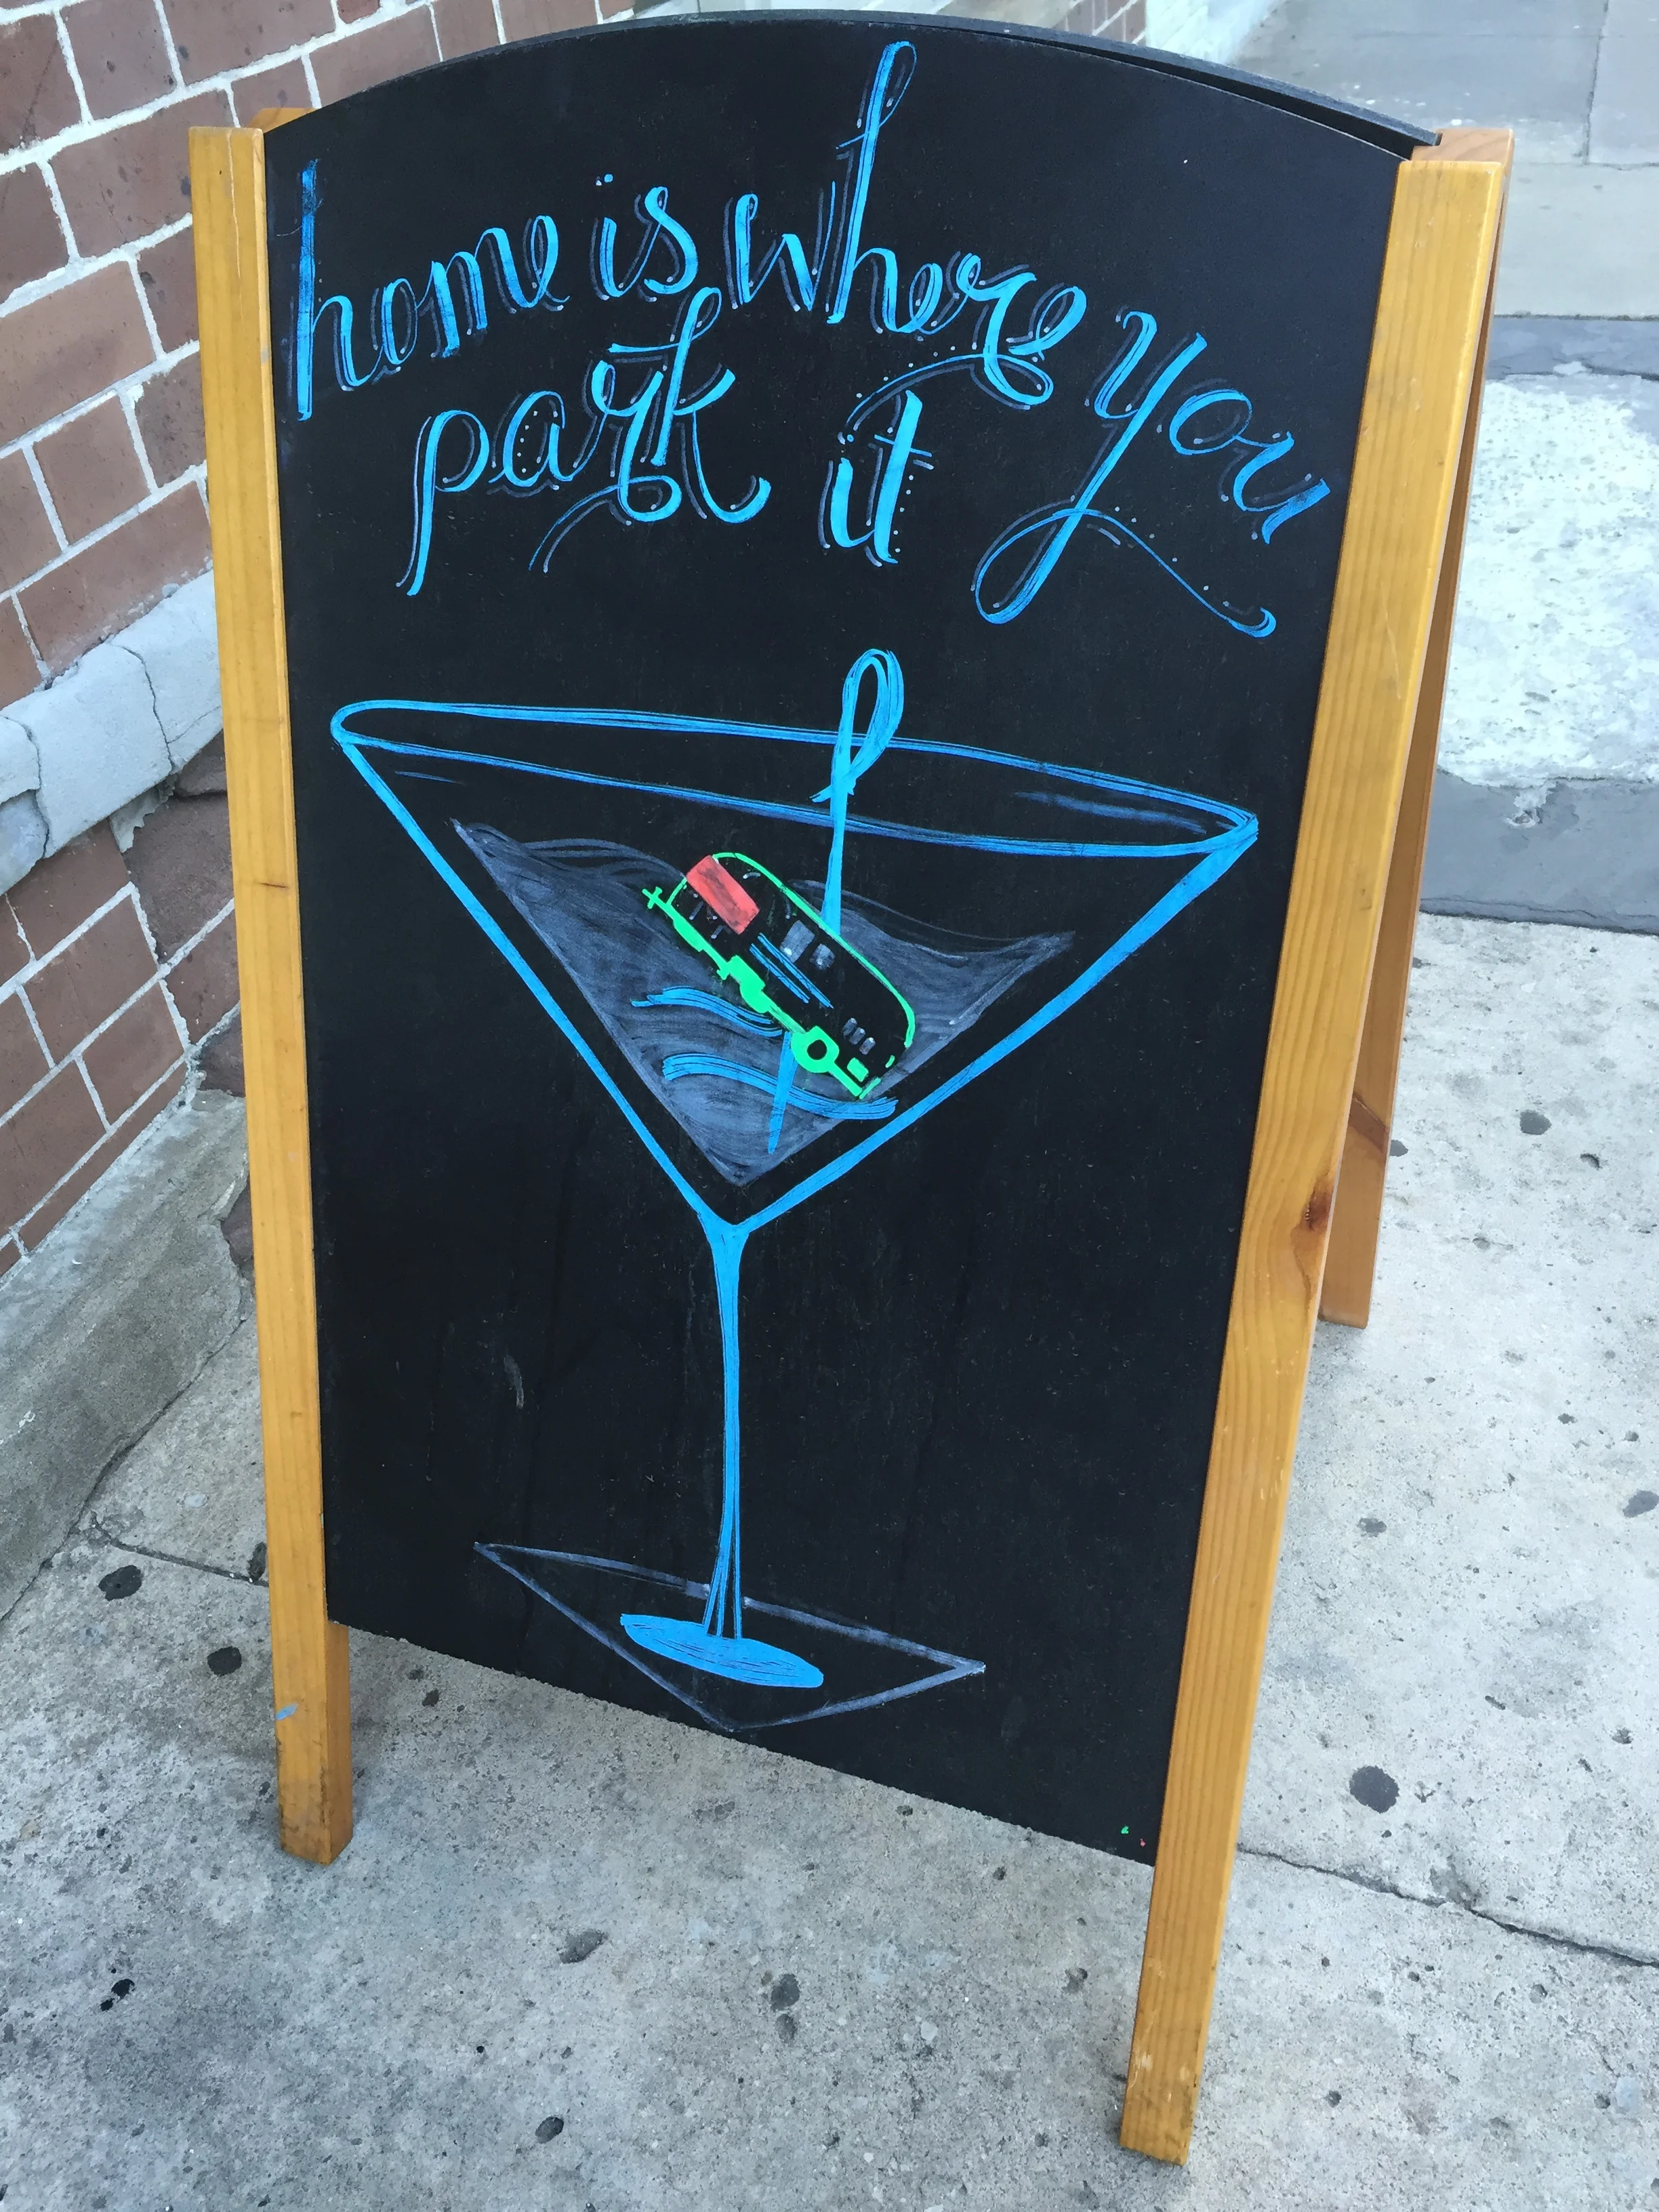 home is where you
park it